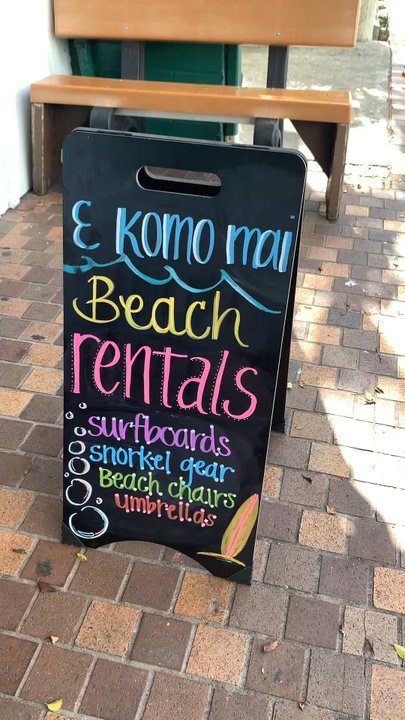 E komo mai
Beach
rentals
surfboards
snorkel gear
Beach chairs
umbrellas